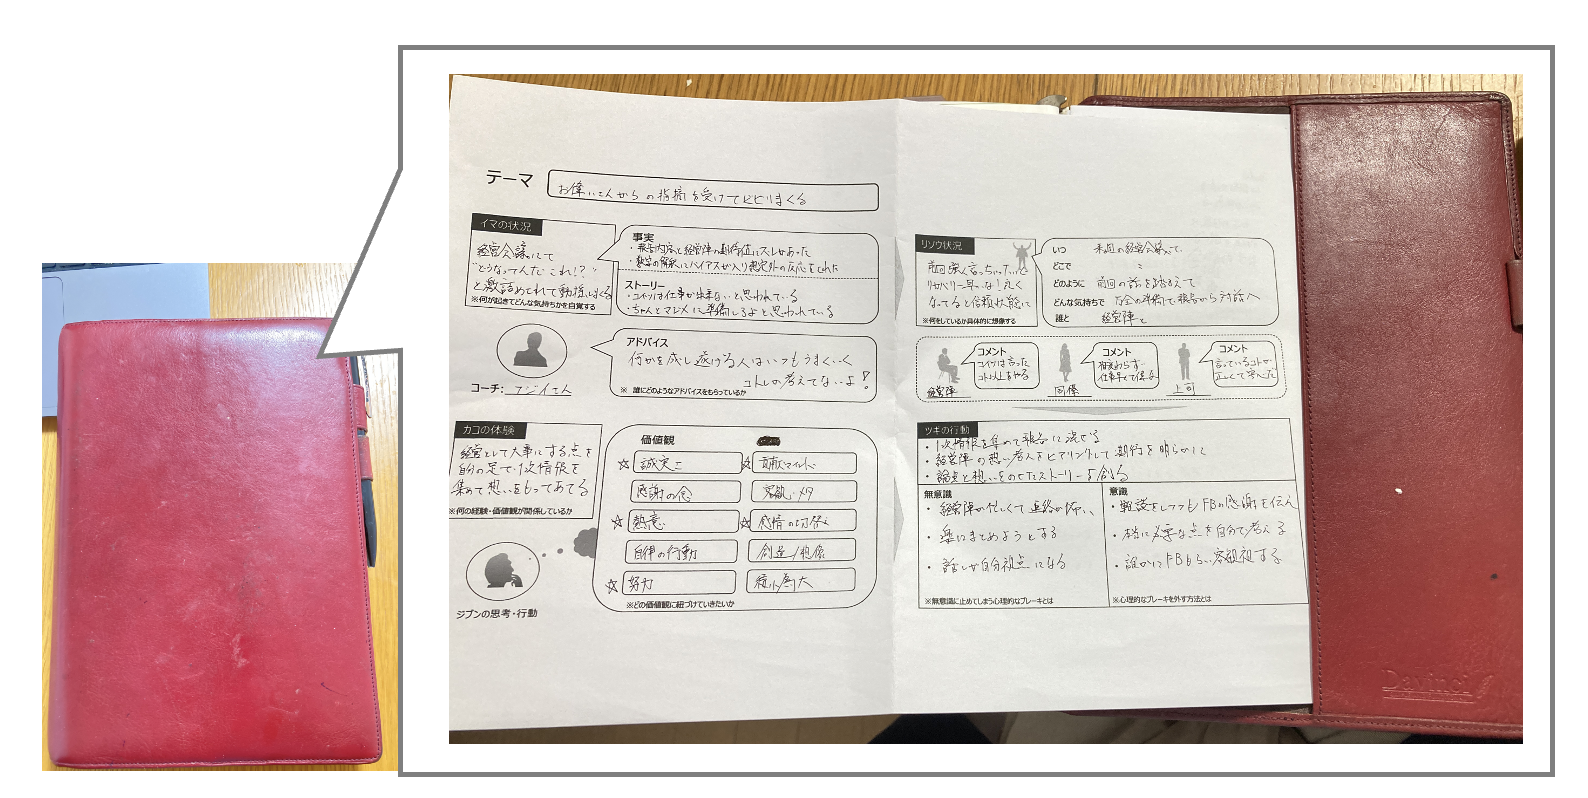 テーマ
お偉いさんからの指摘を受けてビビりまくる
イマの状況
経営会議にて
"どうなってんだこれ!?"
と激詰めされて動揺しまくる
※何が起きてどんな気持ちかを自覚する
事実
・報告内容と経営陣の期待値にズレがあった
・報告の解釈にバイアスが入り想定外の反応をされた
ストーリー
・コイツは仕事が出来ないと思われている
・ちゃんとマジメに準備しろよと思われている
コーチ:フジイさん
アドバイス
何かを成し遂げる人はいつもうまくいく
コトしか考えてないよ!
※ 誰にどのようなアドバイスをもらっているか
カコの体験
経営として大事にする点を
自分の足で1次情報を
集めて想いをもってあてる
※何の経験・価値観が関係しているか
ジブンの思考・行動
価値観
☆ 誠実さ
☆ 貢献マインド
感謝の念
客観・メタ
☆ 熱意
☆ 感情の切替え
自律の行動
創造/想像
☆ 努力
極小/極大
※どの価値観に紐づけていきたいか
リソウ状況
前回激しく言っちゃったけど
リカバリー早いな!良く
なってると信頼状態に
※何をしているか具体的に想像する
いつ 次回の経営会議にて
どこで 〃
どのように 前回の話を踏まえて
どんな気持ちで 万全の準備で報告から対話へ
誰と 経営陣と
コメント
コイツは言った
コト以上をやる
経営陣
コメント
相変わらず
仕事早くて係る
同僚
コメント
言っているコトが
正しくて学んだ
上司
ツギの行動
・1次情報を集めて報告に混ぜる
・経営陣の想い/考えをヒアリングして期待を明らかに
・論点と想いをのせたストーリーを創る
無意識
・経営陣が忙しくて連絡が怖い
・楽にまとめようとする
・話しが自分視点になる
※無意識に止めてしまう心理的なブレーキとは
意識
・雑談をしつつもFBの感謝を伝え
・本当に必要な点を自分で考える
・誰かにFBもらい客観視する
※心理的なブレーキを外す方法とは
Davinci